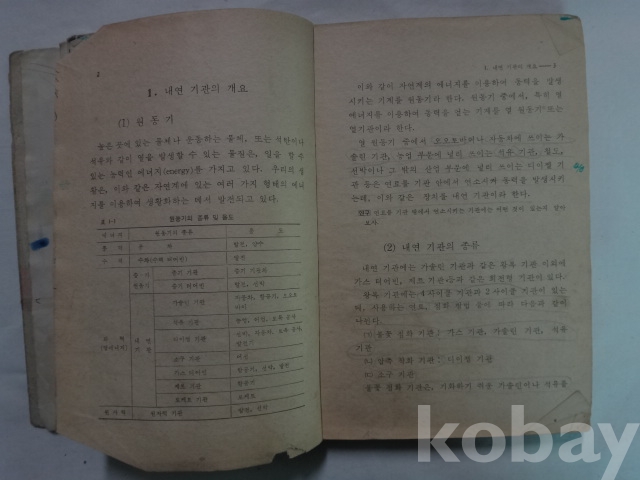 2
1. 내연 기관의 개요
(1) 원 동 기
높은 곳에 있는 물체나 운동하는 물체, 또는 석탄이나
석유와 같이 열을 발생할 수 있는 물질은, 일을 할 수
있는 능력인 에너지(energy)를 가지고 있다. 우리의 생
활은, 이와 같은 자연계에 있는 여러 가지 형태의 에너
지를 이용하여 생활화하는 데서 발전되고 있다.
표 1-1 원동기의 종류 및 용도
에너지 원동기의 종류 용 도
풍 력 풍 차 발전, 양수
수 력 수차(수력 터빈) 발전
증기 원동기 증기 기관
증기 터빈
가솔린 기관
석유 기관
내연 기관 디이젤 기관
소구 기관
가스 터빈
제트 기관 항공기
로케트 기관 로케트
원자력 기관
1. 내연 기관의 개요 3
이와 같이 자연계의 에너지를 이용하여 동력을 발생
시키는 기계를 원동기라 한다. 원동기 중에서, 특히 열
에너지를 이용하여 동력을 얻는 기계를 열 원동기 또는
열기관이라 한다.
열 원동기 중에서 오오토바이나 자동차에 쓰이는 가
솔린 기관, 농업 부문에 널리 쓰이는 석유 기관,
선박이나 그 밖의 산업 부문에 널리 쓰이는 디이젤 기
관 등은 연료를 기관 안에서 연소시켜 동력을 발생시키
는데, 이와 같은 장치를 내연 기관이라 한다.
연구 연료를 기관 밖에서 연소시키는 기관에는 어떤 것이 있는지 알아
보자.
(2) 내연 기관의 종류
내연 기관에는 가솔린 기관과 같은 왕복 기관 이외에
가스 터어빈, 제트 기관 등과 같은 회전형 기관이 있다.
왕복 기관에는 4 사이클 기관과 2 사이클 기관이 있는
데, 사용하는 연료, 점화 방법 등에 따라 다음과 같이
나뉜다.
(1) 불꽃 점화 기관 : 가스 기관, 가솔린 기관, 석유
기관
(2) 압축 점화 기관 : 디이젤 기관
(3) 소구 기관
불꽃 점화 기관은, 기화하기 쉬운 가솔린이나 석유를
kobay